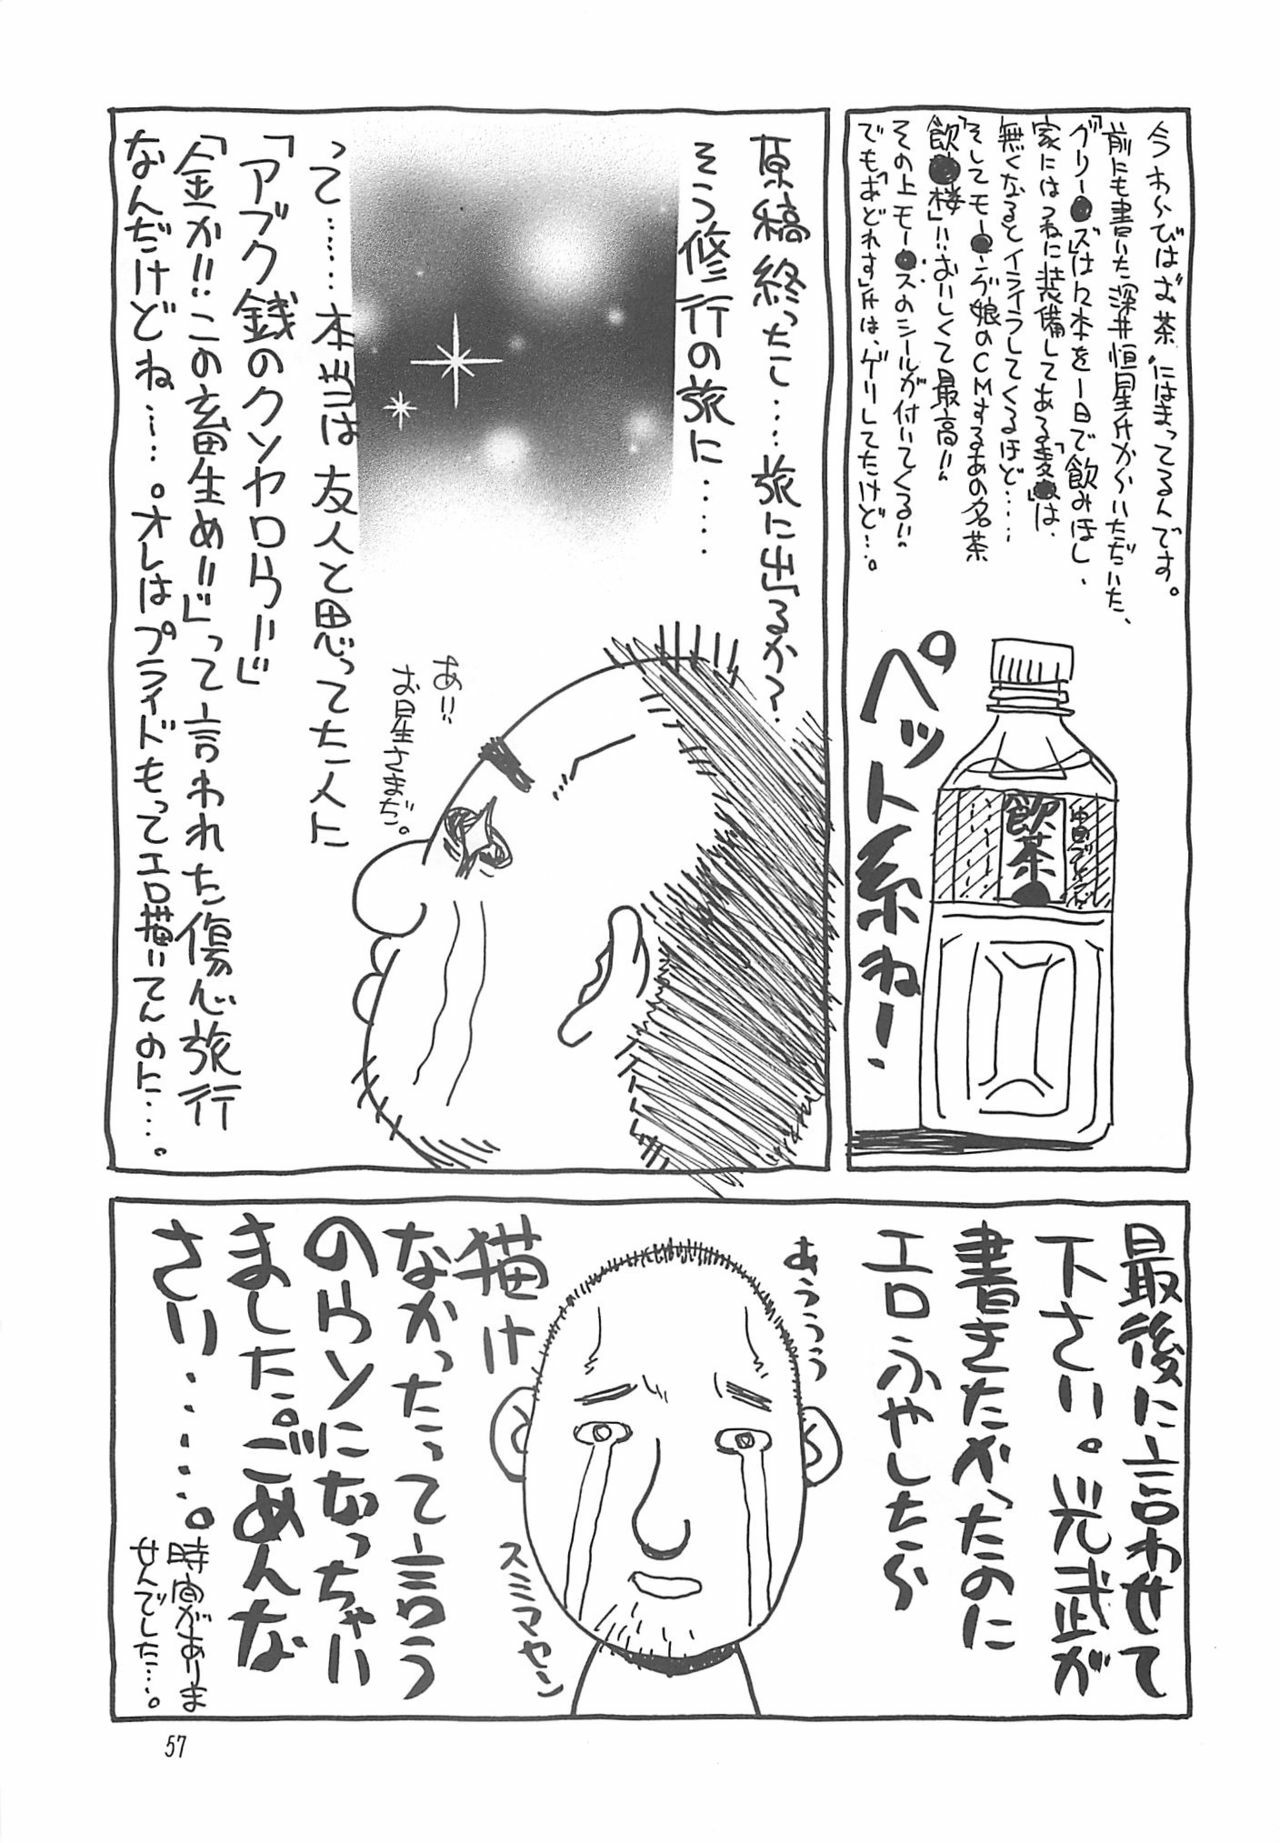 今わらびはお茶にはまってるんです。
前にも書いた深井恒星氏からいただいた、
「グリー●ズ」は2本を1日で飲みほし、
家にはつねに装備してある「麦●」は、
無くなるとイライラしてくるほど‥‥
そしてモー●ング娘のCMするあの名茶
「飲●楼」!!‥おいしくて最高!!
その上モー●スのシールが付いてくる!!
でも「おどれす」氏は、ゲリしてたけど‥。
ペット系ねー。
飲茶●
原稿終ったし‥‥旅に出るか?
そう修行の旅に‥‥‥
って‥‥‥本当は友人と思ってた人に
「アブク銭のクソヤロウ!!」
「金か!!この畜生め!!」って言われた傷心旅行
なんだけどね‥‥。オレはプライドもってエロ描いてんのに‥‥。
あ!!
お星さまだ。
最後に言わせて
下さい。光武が
書きたかったのに
エロふやしたら
あうううう
描け
なかったって言う
のらソになっちゃい
ました。ごめんな
さい‥‥‥。
スミマセン
時間がありま
せんでした‥‥。
57